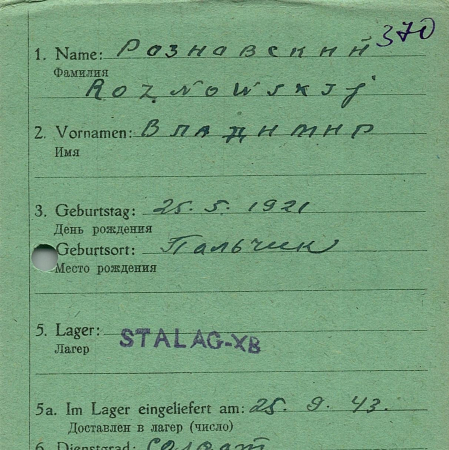 370
1. Name: Розновский
Фамилия
Roznowskij
2. Vornamen: Владимир
Имя
3. Geburtstag: 25.5.1921
День рождения
Geburtsort: Пальчик
Место рождения
5. Lager: STALAG-XB
Лагер
5a. Im Lager eingeliefert am: 25. 9. 43.
Доставлен в лагер (число)
6. Dienstgrad: солдат